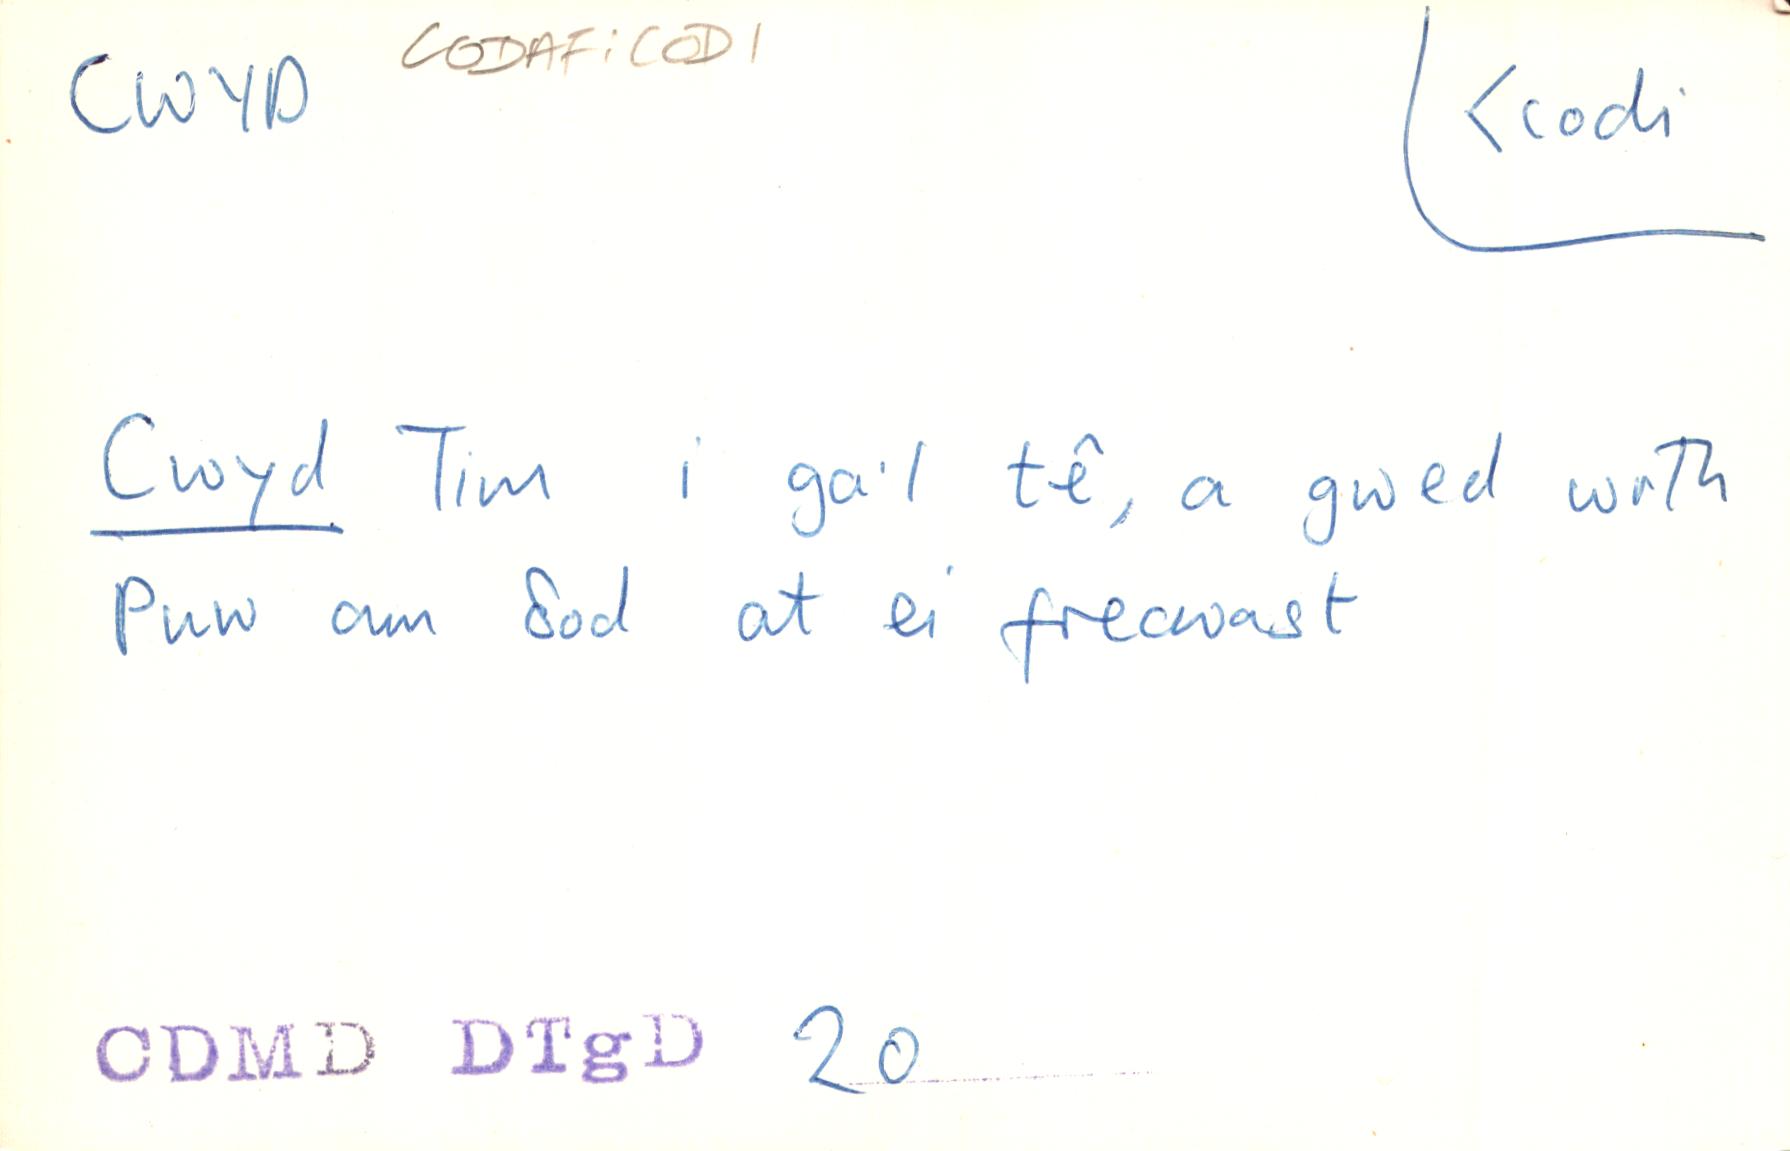 CWYD CODAF: CODI <codi
Cwyd Tim i ga'l tê, a gwed wrth
Puw am δod at ei frecwast
CDMD DTgD 20